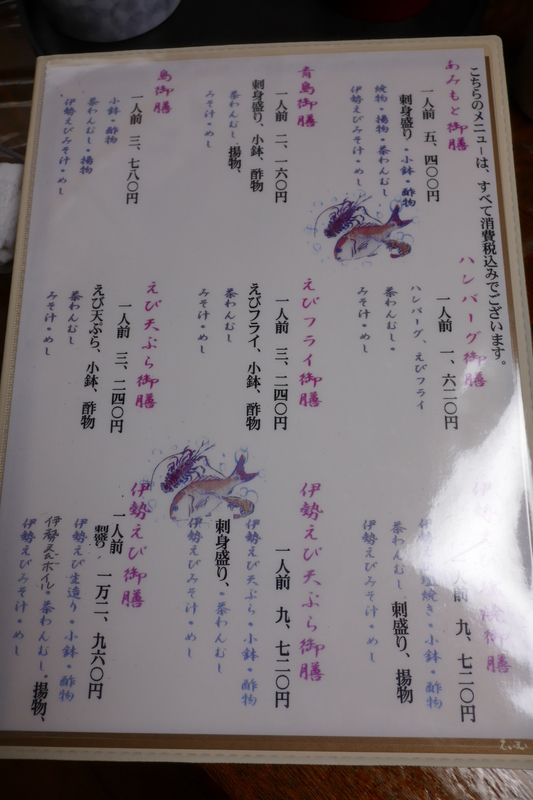 こちらのメニューは、すべて消費税込みでございます。
あみもと御膳
一人前 五、四〇〇円
刺身盛り・小鉢・酢物
焼物・揚物・茶わんむし
伊勢えびみそ汁・めし
青島御膳
一人前 二、一六〇円
刺身盛り、小鉢、酢物
茶わんむし、揚物、
みそ汁・めし
島御膳
一人前 三、七八〇円
小鉢・酢物
茶わんむし・揚物
伊勢えびみそ汁・めし
ハンバーグ御膳
一人前 一、六二〇円
ハンバーグ、えびフライ
茶わんむし。
みそ汁・めし
えびフライ御膳
一人前 三、二四〇円
えびフライ、小鉢、酢物
茶わんむし
みそ汁・めし
えび天ぷら御膳
一人前 三、二四〇円
えび天ぷら、小鉢、酢物
茶わんむし
みそ汁・めし
焼御膳
一人前 九、七二〇円
塩焼き・小鉢・酢物
茶わんむし 刺身盛り、揚物
伊勢えびみそ汁・めし
伊勢えび天ぷら御膳
一人前 九、七二〇円
伊勢えび天ぷら・小鉢・酢物
刺身盛り、・茶わんむし
伊勢えびみそ汁・めし
伊勢えび御膳
一人前 一万二、九六〇円
伊勢えび生造り・小鉢・酢物
伊勢えびボイル・茶わんむし。揚物、
伊勢えびみそ汁・めし